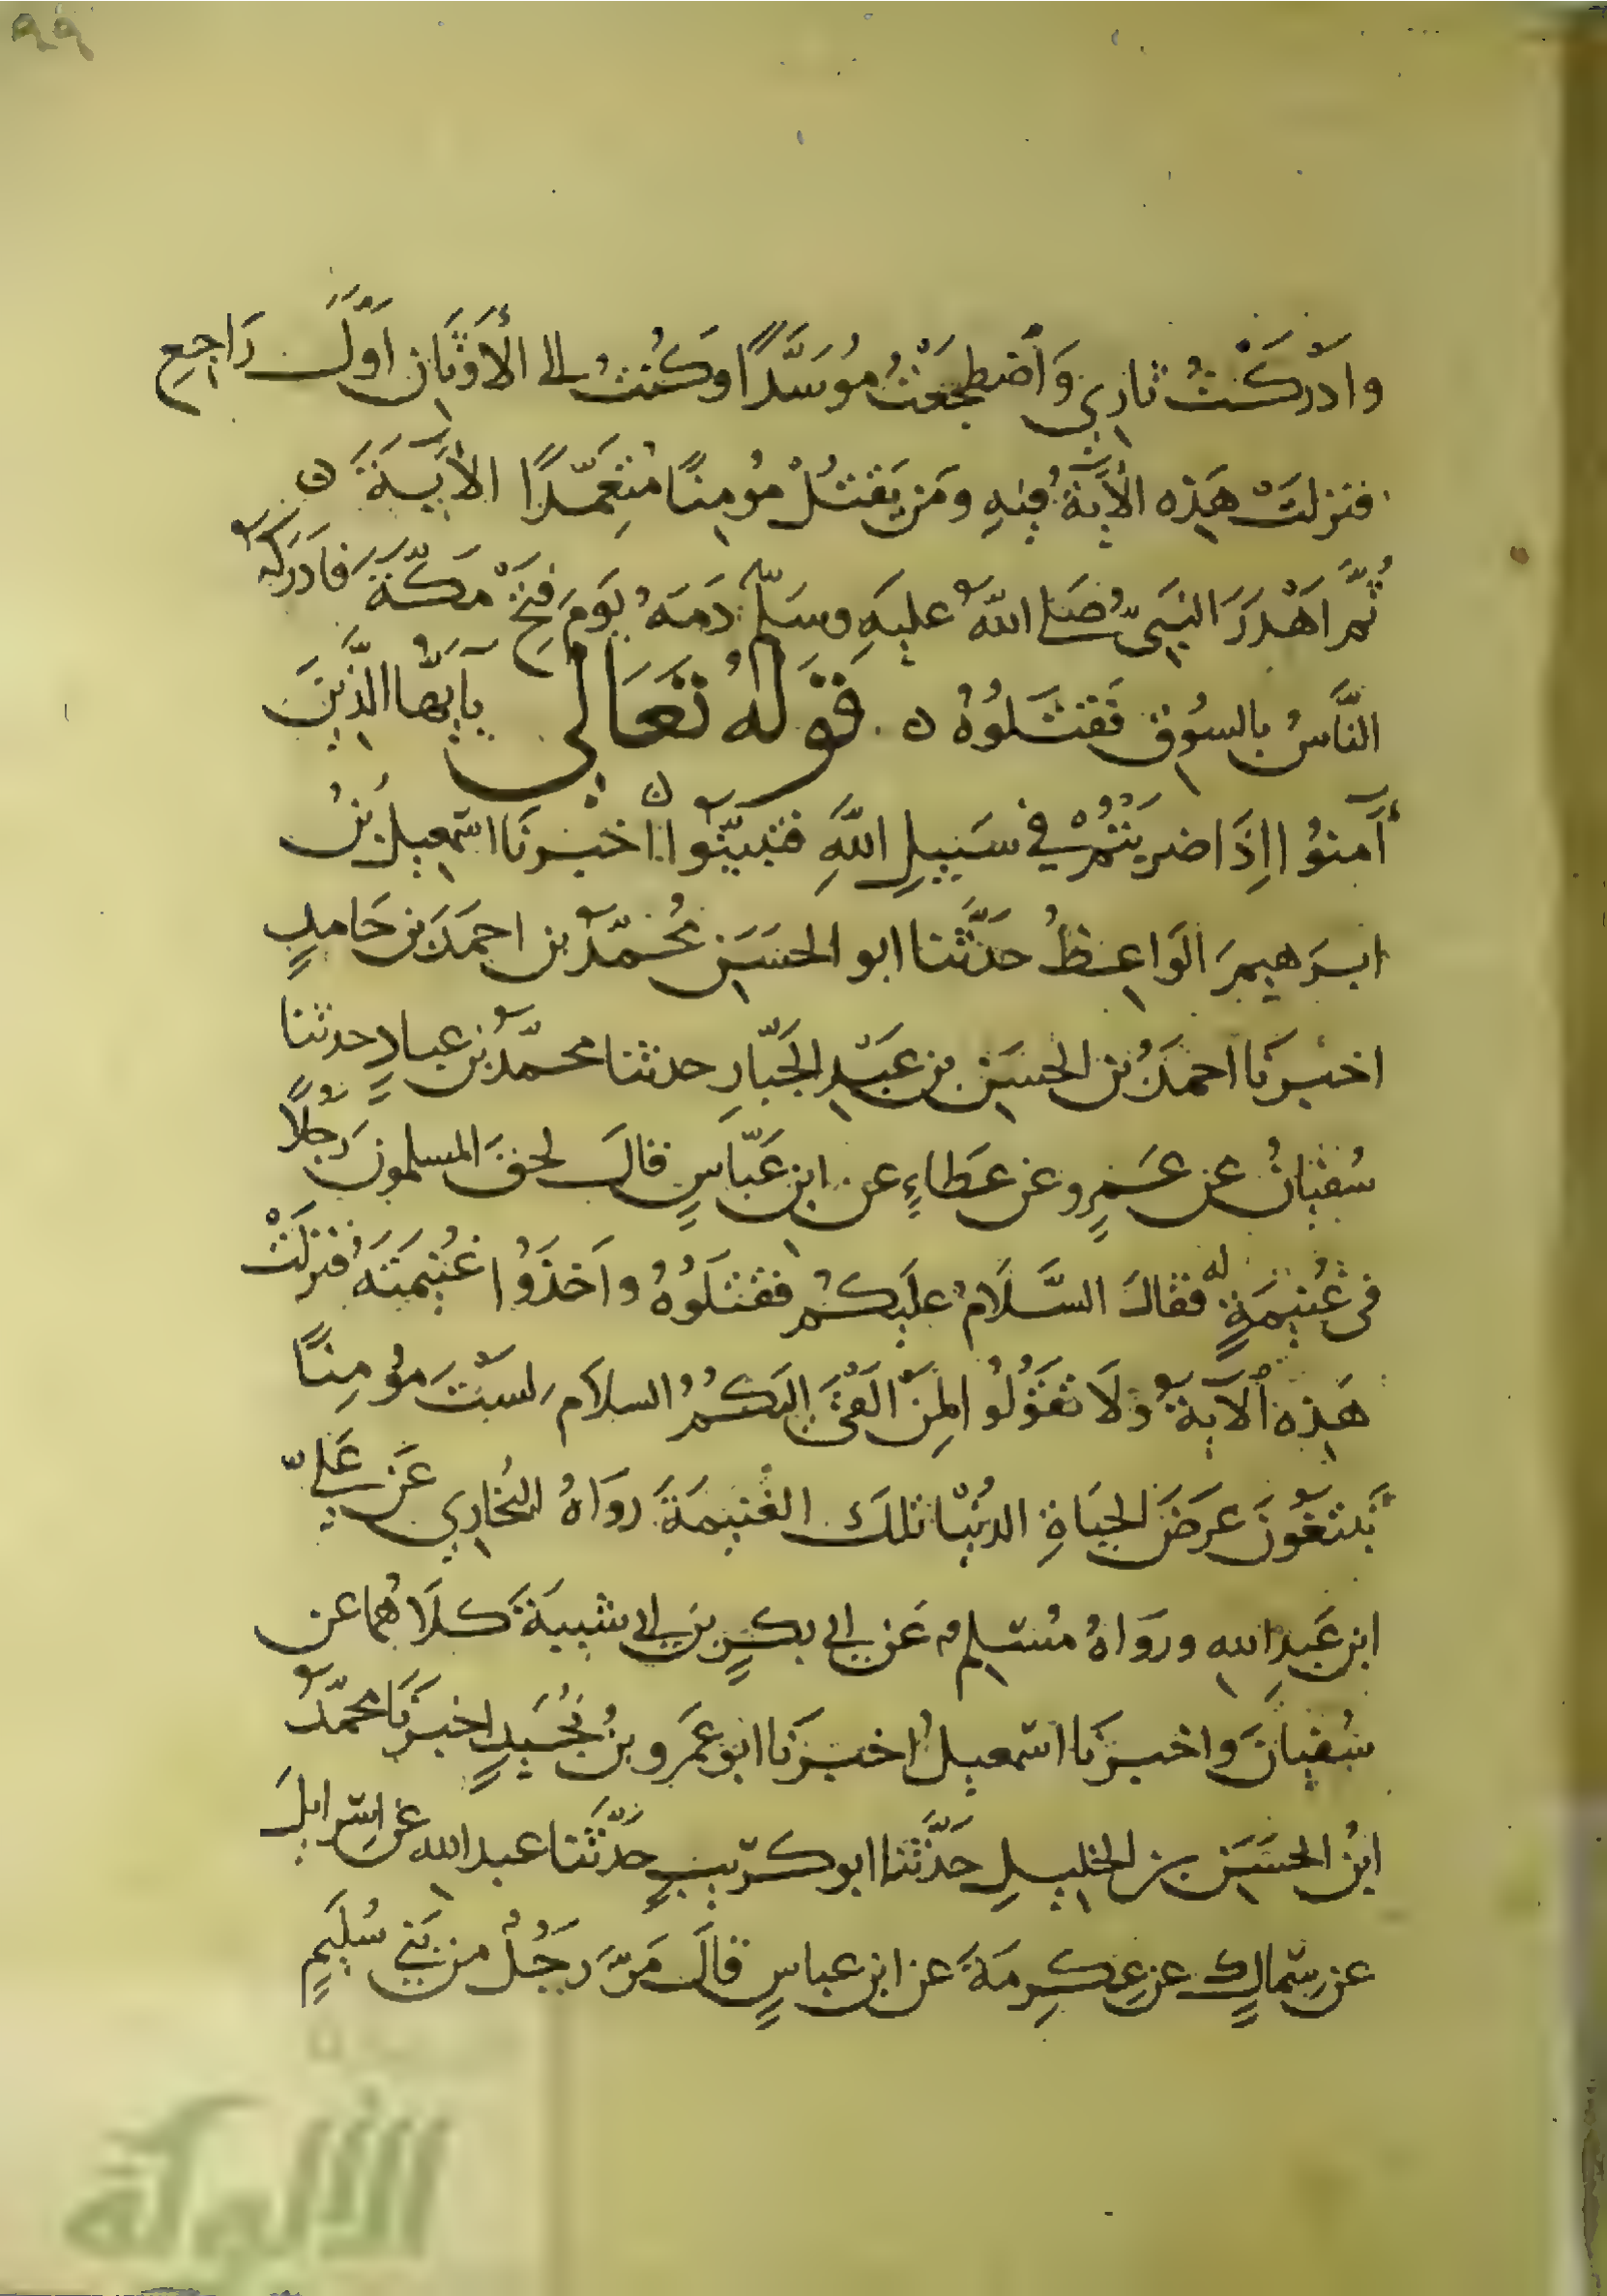 ٩٩
وادركت ثاري وَاضطجَعْتُ مُوَسَّدًا وَكُنتُ الى الأَوثَانِ اوَّلَ رَاجِعِ
فنزلتْ هَذِه الأيَةُ فِيهِ وَمَن يَقتُلْ مُؤمِنًا مُتعَمِّدًا الأيَةَ ه
ثُمَّ اَهْدَرَ النبيُّ صَلى اللهُ عليهِ وسَلّم دَمَهُ يَومَ فتحِ مَكَّةَ فادرَكَهُ
النَّاسُ بالسُوقِ فقتَلوُهُ ه قَولهُ تعَالى يايهَا الذينَ
آمنوُا اِذَا ضربتُمْ في سَبيلِ اللهِ فتبينوا ه اخبرنَا اسمعيلُ بنُ
ابرَهيمَ الوَاعِظُ حَدَّثنا ابو الحسَن مُحمّدُ بن احمَدَ بن حَامدٍ
اخبرنَا احمدُ بن الحسَين بن عَبدِ الجَبّارِ حدثنا محمّدُ بن عبادٍ حدثنا
سُفيانُ عن عَمرٍو عن عَطاءٍ عن ابن عَبّاسٍ قالَ لحقَ المسلمونَ رَجُلًا
في غُنيمَةٍ له فقالَ السَّلَامُ عليكُم فقتَلوُهُ واَخذَوُا غُنيمَتَهُ فنزلَتْ
هَذِه الآيةُ وَلَا تقوُلوُا لِمَنْ القىَ اليكُمُ السلامَ لستَ مؤمِنًا
تَبتغُونَ عرَضَ الحيَاةِ الدُنيَا تلكَ الغنيمَةَ روَاهُ البُخارِي عَن عَليِّ
ابن عَبدِ اللهِ وروَاهُ مُسلِم عَن ابي بكرٍ بن ابي شيبَةَ كلَاهُما عن
سُفيانَ واخبرنَا اسمعيلُ اخبرنَا ابو عَمرو بنُ نُجَيدٍ اخبرنَا محمّدُ
ابنُ الحسَن بن الخليلِ حَدَّثنا ابو كرَيبٍ حدَّثنا عبد الله عن اسرايلَ
عن سِمَاكٍ عن عِكرِمَةَ عن ابن عباسٍ قالَ مَرَّ رَجُلٌ من بَني سُلَيمٍ
الألوكة